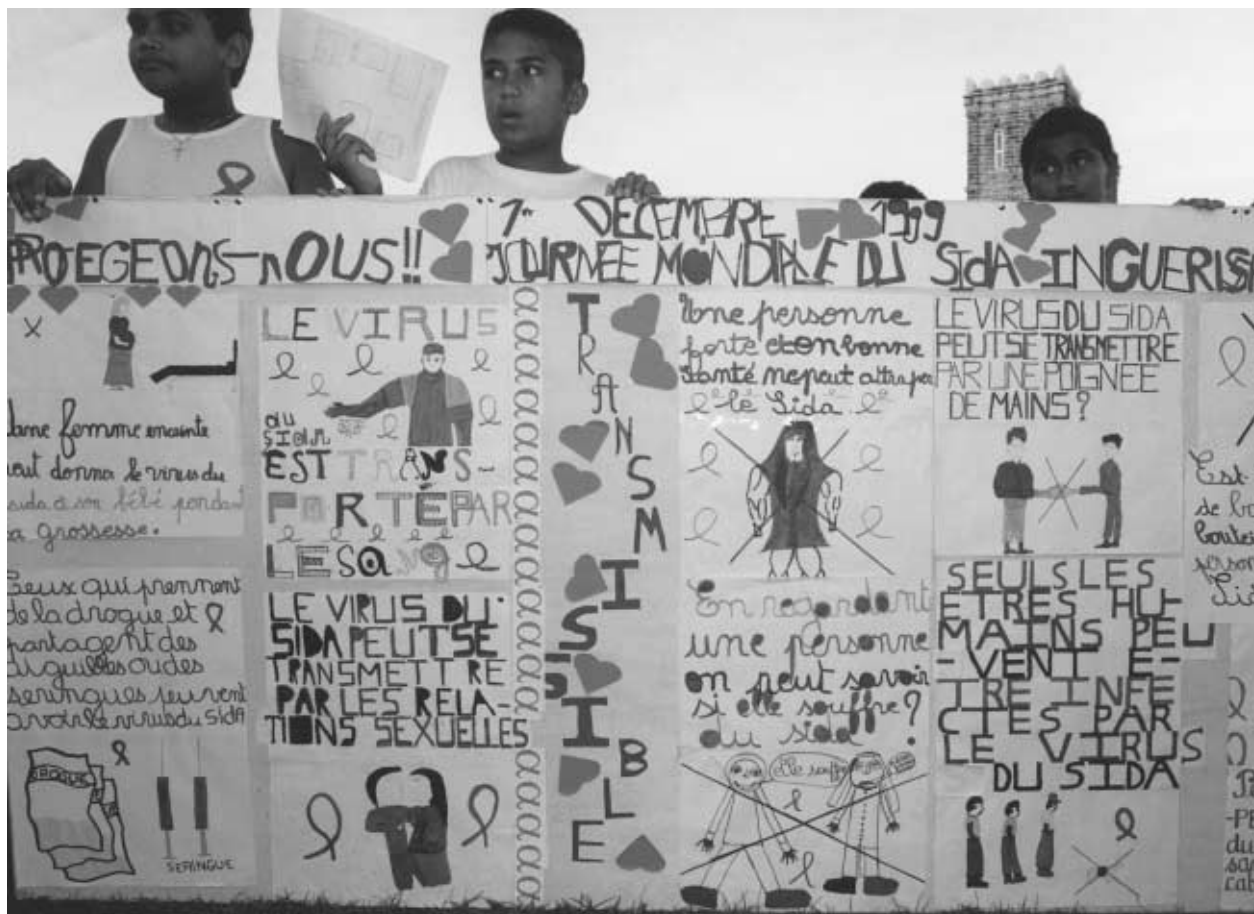 PROEGEONS-NOUS!!
1er DÉCEMBRE 1999
JOURNÉE MONDIALE DU SIDA INGUERISS
Une femme enceinte
peut donner le virus du
sida a son bébé pendant
la grossesse.
Ceux qui prennent
de la drogue et
partagent des
aiguilles ou des
seringues peuvent
avoir le virus du SIDA
DROGUE
SERINGUE
LE VIRUS
DU
SIDA
EST TRANS-
PORTÉ PAR
LE SANG
LE VIRUS DU
SIDA PEUT SE
TRANSMETTRE
PAR LES RELA-
TIONS SEXUELLES
TRANSMISSIBLE
Une personne
forte et en bonne
santé ne peut attraper
le Sida
En regardant
une personne
on peut savoir
si elle souffre?
du sida
Elle souffre
LE VIRUS DU SIDA
PEUT SE TRANSMETTRE
PAR UNE POIGNEE
DE MAINS?
SEULS LES
ETRES HU-
MAINS PEU
-VENT E-
TRE INFE
CTES PAR
LE VIRUS
DU SIDA
Est-
de
boutei
person
-PE
du